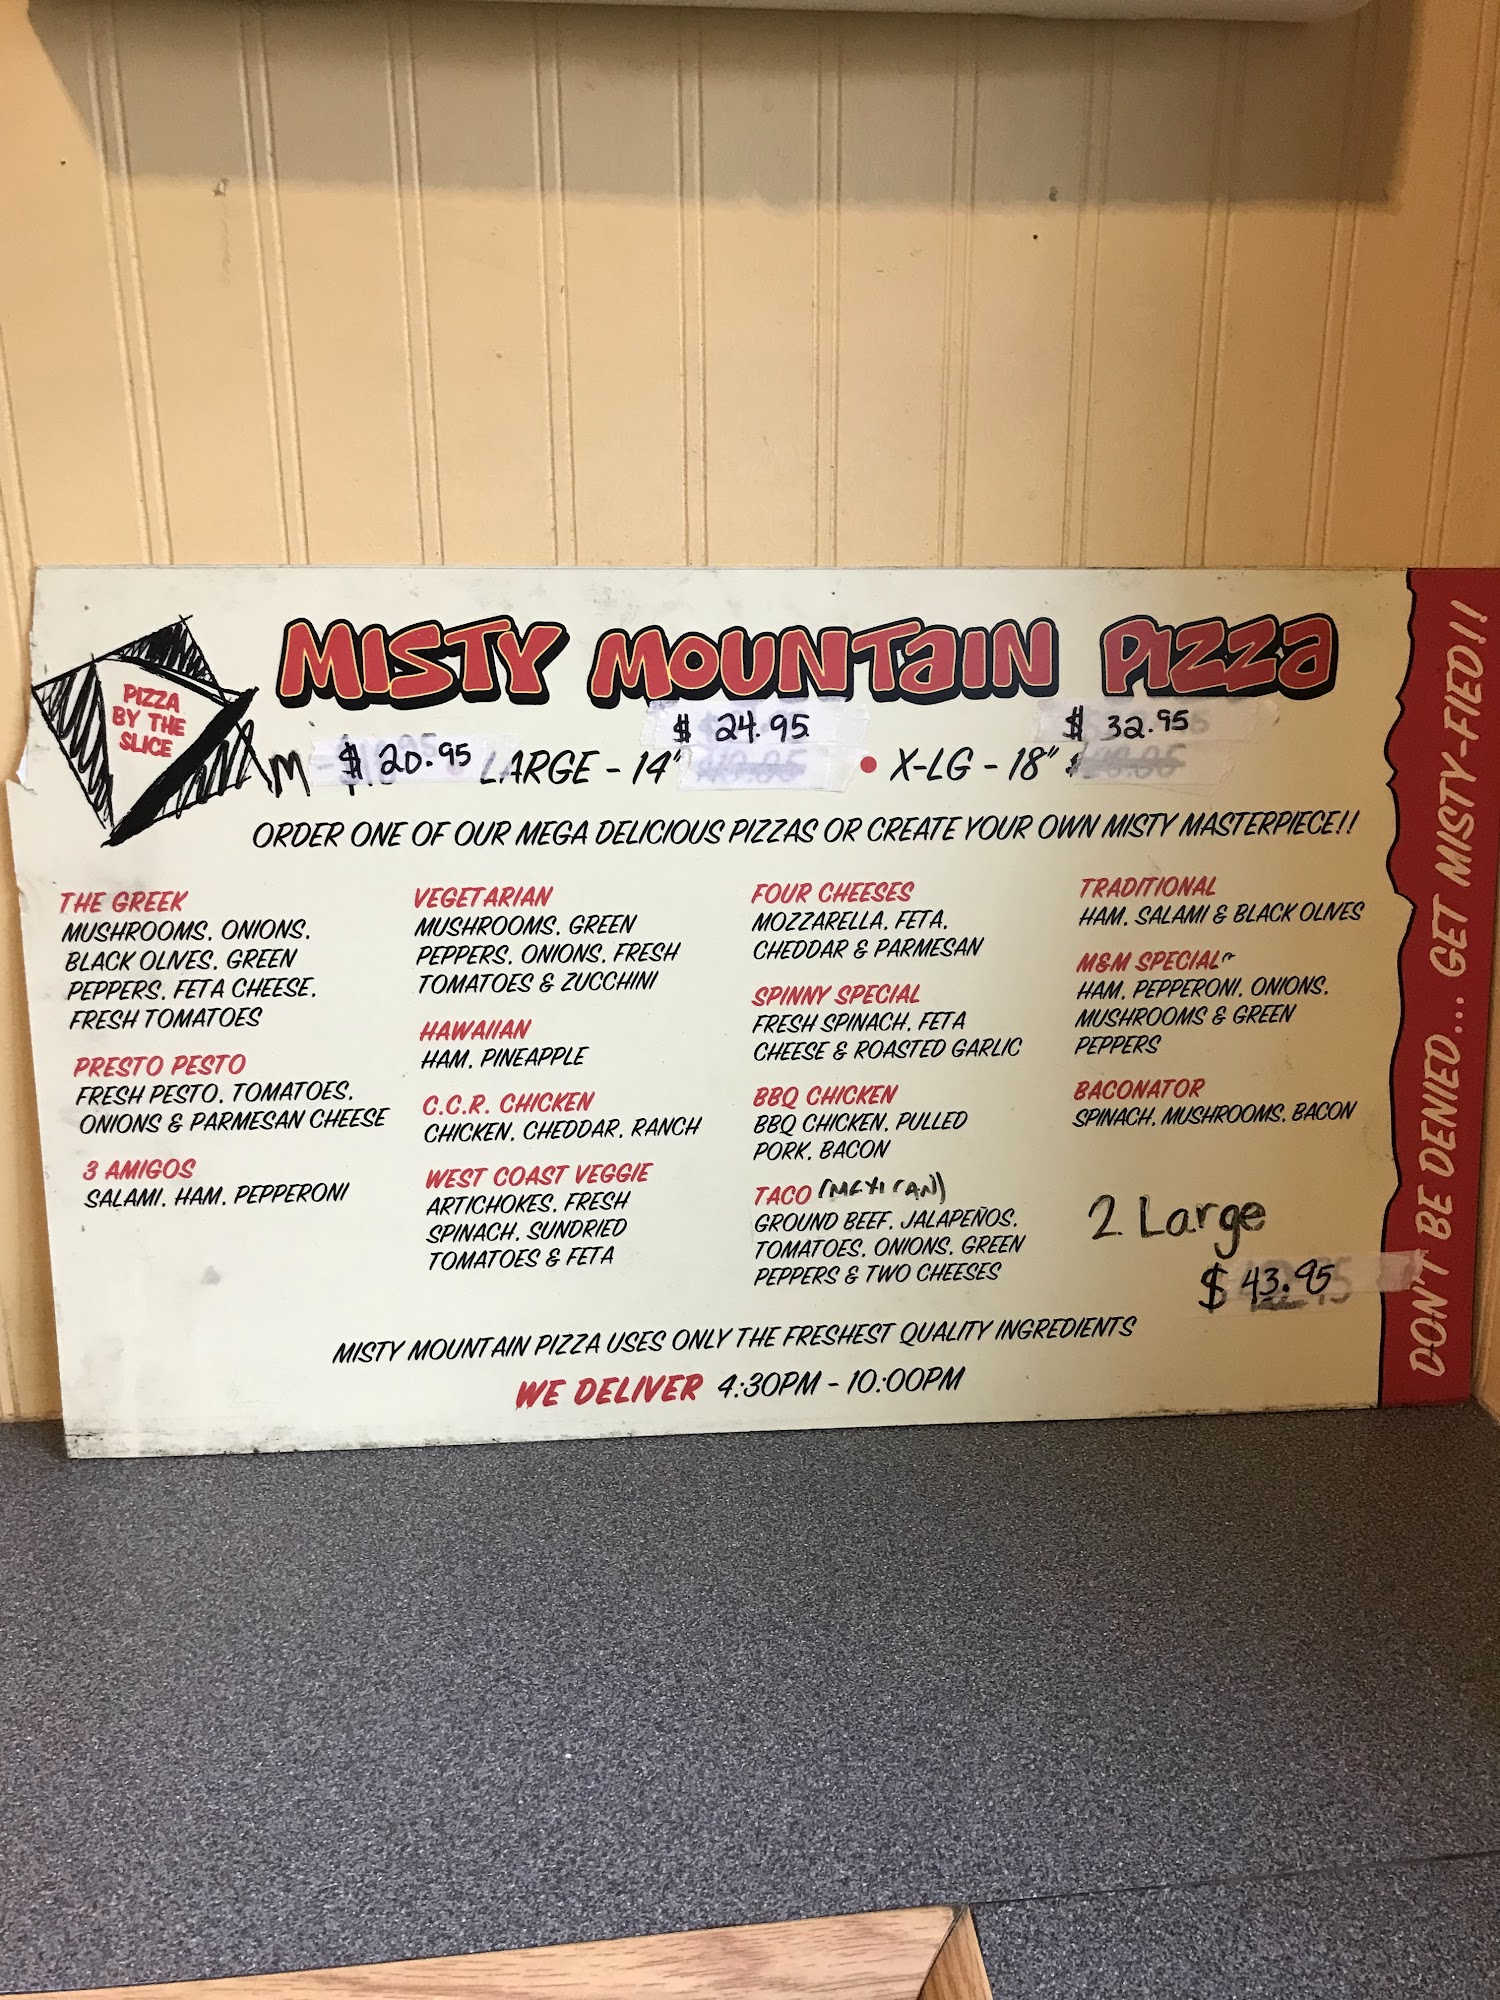 PIZZA
BY THE
SLICE
MISTY MOUNTAIN PIZZA
M $ 20.95 LARGE - 14" $ 24.95 • X-LG - 18" $ 32.95
ORDER ONE OF OUR MEGA DELICIOUS PIZZAS OR CREATE YOUR OWN MISTY MASTERPIECE!!
THE GREEK
MUSHROOMS, ONIONS,
BLACK OLIVES, GREEN
PEPPERS, FETA CHEESE,
FRESH TOMATOES
PRESTO PESTO
FRESH PESTO, TOMATOES,
ONIONS & PARMESAN CHEESE
3 AMIGOS
SALAMI, HAM, PEPPERONI
VEGETARIAN
MUSHROOMS, GREEN
PEPPERS, ONIONS, FRESH
TOMATOES & ZUCCHINI
HAWAIIAN
HAM, PINEAPPLE
C.C.R. CHICKEN
CHICKEN, CHEDDAR, RANCH
WEST COAST VEGGIE
ARTICHOKES, FRESH
SPINACH, SUNDRIED
TOMATOES & FETA
FOUR CHEESES
MOZZARELLA, FETA,
CHEDDAR & PARMESAN
SPINNY SPECIAL
FRESH SPINACH, FETA
CHEESE & ROASTED GARLIC
BBQ CHICKEN
BBQ CHICKEN, PULLED
PORK, BACON
TACO (MEXICAN)
GROUND BEEF, JALAPEÑOS,
TOMATOES, ONIONS, GREEN
PEPPERS & TWO CHEESES
TRADITIONAL
HAM, SALAMI & BLACK OLIVES
M&M SPECIAL
HAM, PEPPERONI, ONIONS,
MUSHROOMS & GREEN
PEPPERS
BACONATOR
SPINACH, MUSHROOMS, BACON
2 Large
$ 43.95
MISTY MOUNTAIN PIZZA USES ONLY THE FRESHEST QUALITY INGREDIENTS
WE DELIVER 4:30PM - 10:00PM
DON'T BE DENIED... GET MISTY-FIED!!